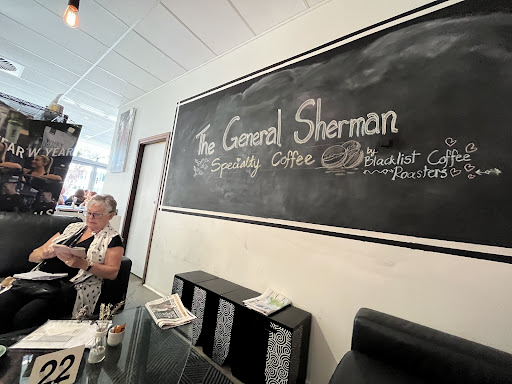 The General Sherman
Specialty Coffee
by
Blacklist Coffee
Roasters
AR W YEAR
22